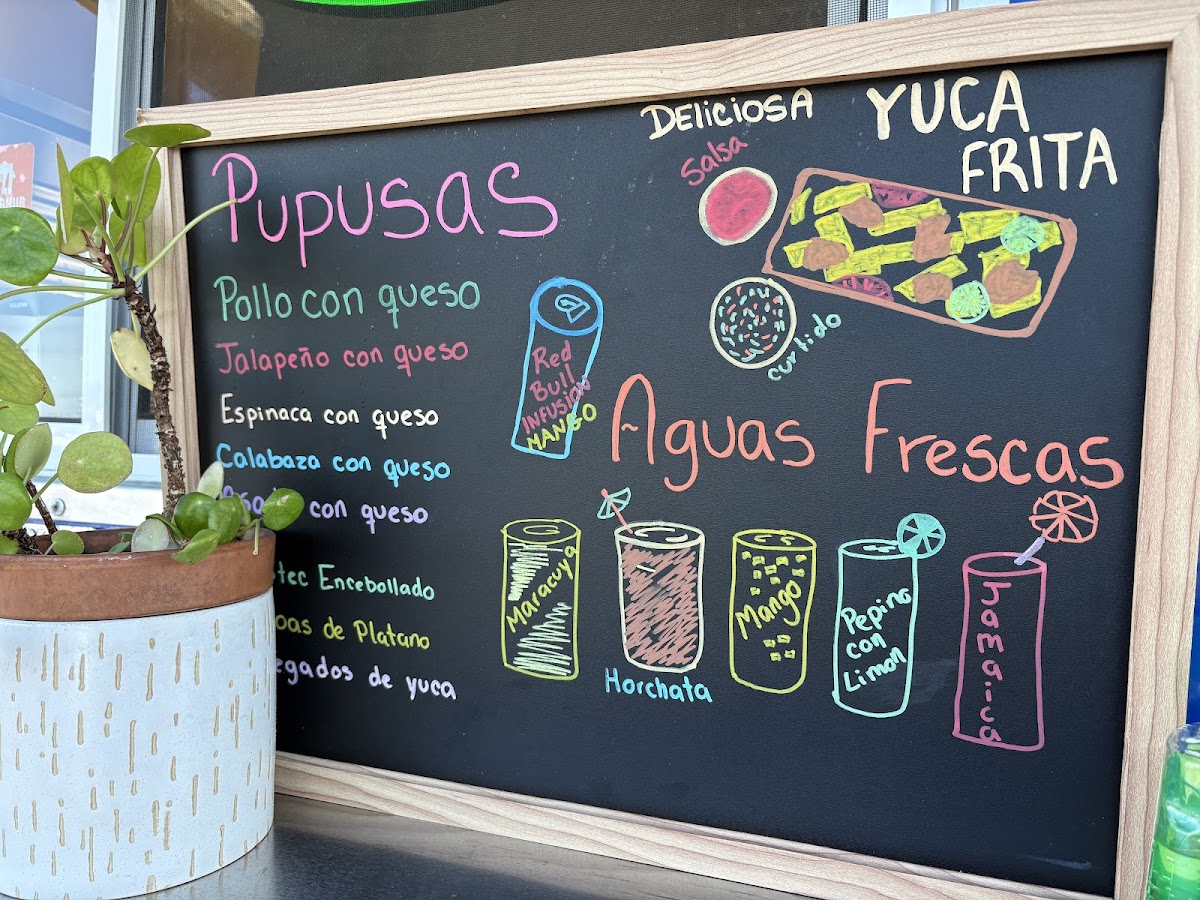 Pupusas
Pollo con queso
Jalapeño con queso
Espinaca con queso
Calabaza con queso
con queso
Encebollado
de Platano
de yuca
Deliciosa
YUCA
FRITA
Salsa
curtido
Red
Bull
INFUSION
MANGO
Aguas Frescas
Maracuya
Horchata
Mango
Pepino
con
Limon
hamaica